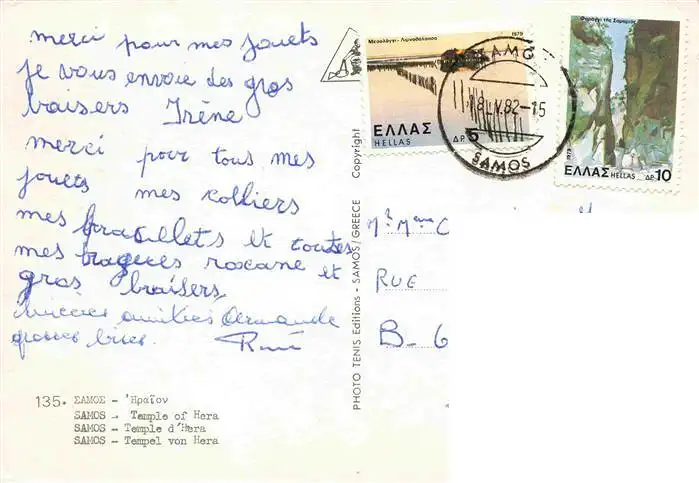 merci pour mes jouets
je vous envoie des gros
baisers Irène
merci pour tous mes
jouets mes colliers
mes bracellets et toutes
mes bagues roxane et
gros baisers
amitiés Armande
grosses bises. René
135. ΣΑΜΟΣ - Ἡραῖον
SAMOS - Temple of Hera
SAMOS - Temple d'Hera
SAMOS - Tempel von Hera
PHOTO TENIS Editions - SAMOS/GREECE Copyright
Μεσολόγγι - Λιμνοθάλασσα 1979
ΕΛΛΑΣ
HELLAS ΔΡ. 5
ΣΑΜΟΣ
18.IV.82-15
SAMOS
Φαράγγι της Σαμαριάς
1979
ΕΛΛΑΣ HELLAS ΔΡ. 10
Mr Meme C
RUE
B-6